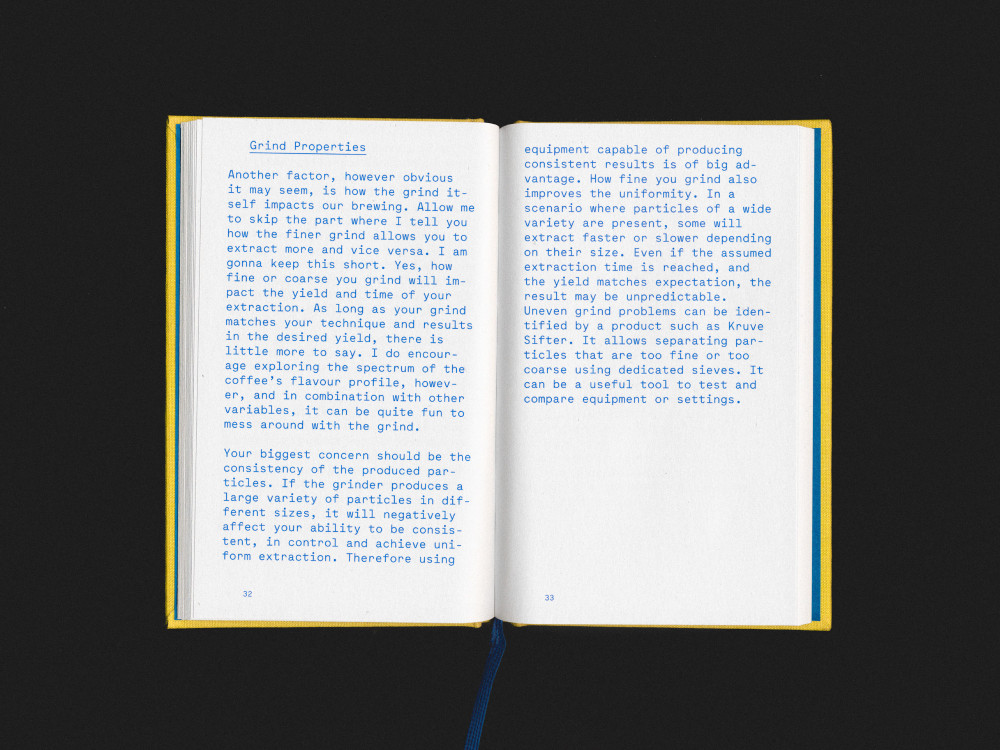 Grind Properties
Another factor, however obvious
it may seem, is how the grind it-
self impacts our brewing. Allow me
to skip the part where I tell you
how the finer grind allows you to
extract more and vice versa. I am
gonna keep this short. Yes, how
fine or coarse you grind will im-
pact the yield and time of your
extraction. As long as your grind
matches your technique and results
in the desired yield, there is
little more to say. I do encour-
age exploring the spectrum of the
coffee's flavour profile, howev-
er, and in combination with other
variables, it can be quite fun to
mess around with the grind.
Your biggest concern should be the
consistency of the produced par-
ticles. If the grinder produces a
large variety of particles in dif-
ferent sizes, it will negatively
affect your ability to be consis-
tent, in control and achieve uni-
form extraction. Therefore using
32
equipment capable of producing
consistent results is of big ad-
vantage. How fine you grind also
improves the uniformity. In a
scenario where particles of a wide
variety are present, some will
extract faster or slower depending
on their size. Even if the assumed
extraction time is reached, and
the yield matches expectation, the
result may be unpredictable.
Uneven grind problems can be iden-
tified by a product such as Kruve
Sifter. It allows separating par-
ticles that are too fine or too
coarse using dedicated sieves. It
can be a useful tool to test and
compare equipment or settings.
33